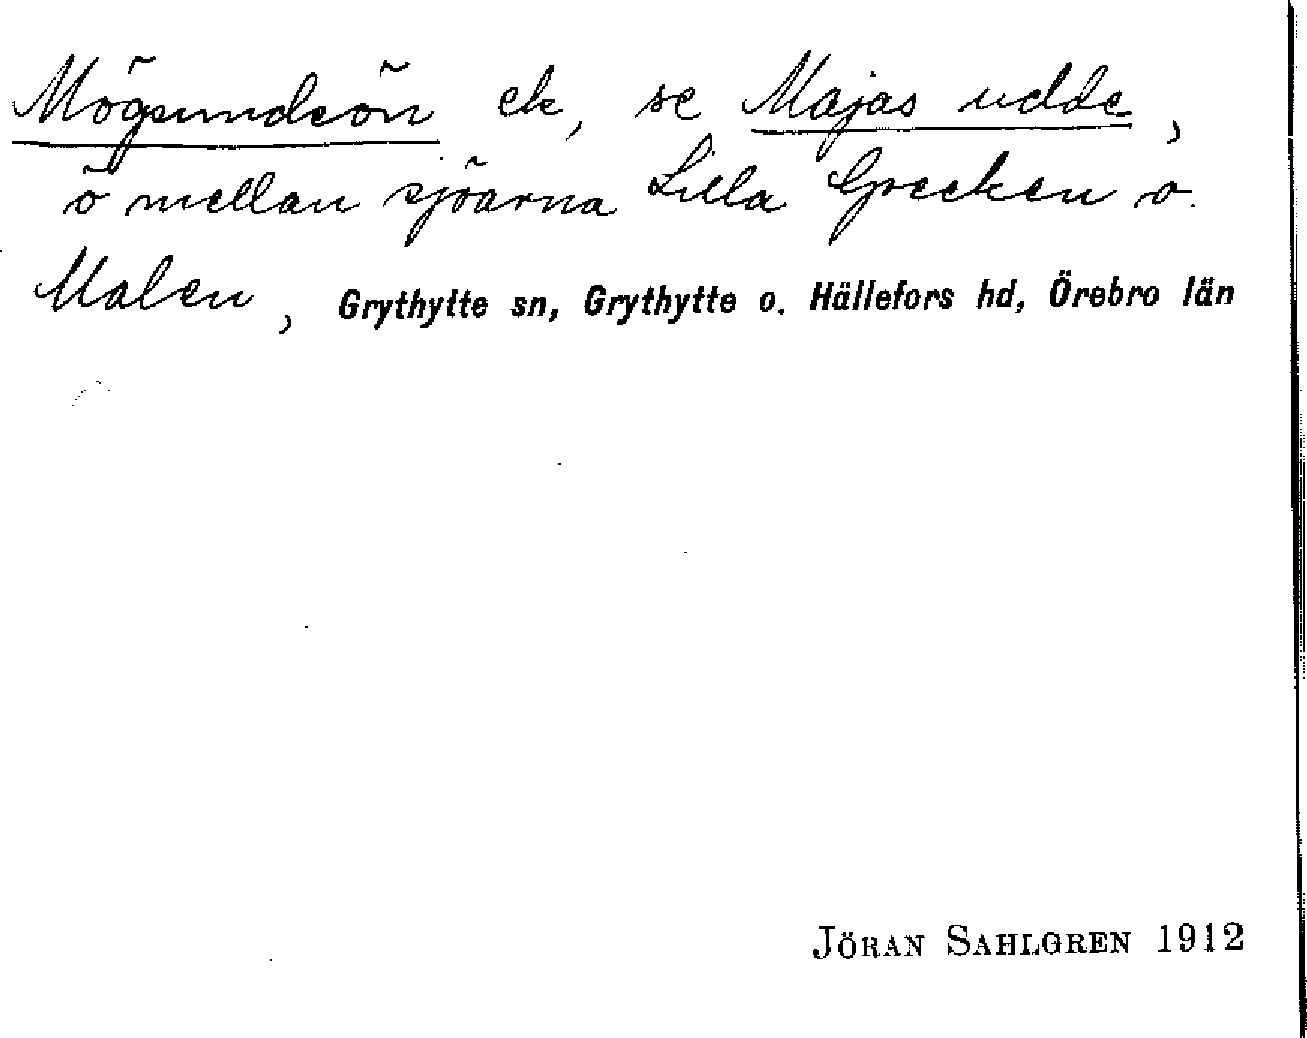 Mögsundsön ek, se Majas udde,
ö mellan sjöarna Lilla Grecken o.
Malen, Grythytte sn, Grythytte o. Hällefors hd, Örebro län
JÖRAN SAHLGREN 1912